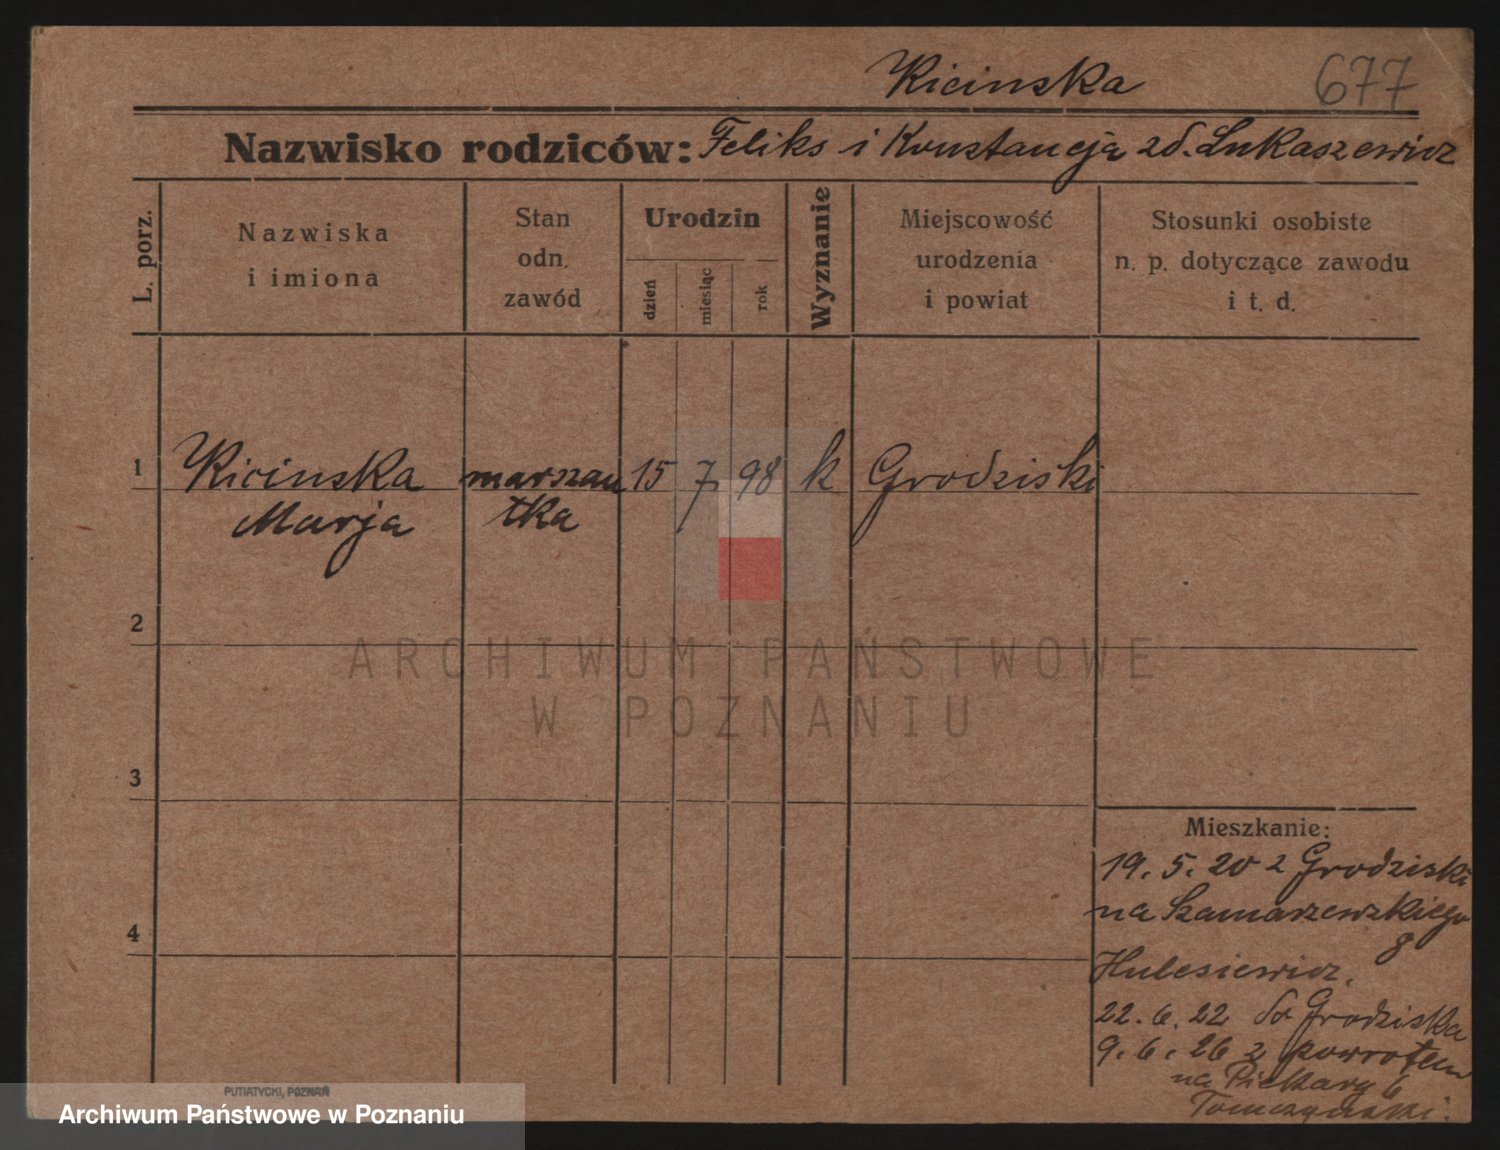 Kicinska
677
Nazwisko rodziców: Feliks i Konstancja zd. Lukaszewicz
L. porz.
Nazwiska
i imiona
Stan
odn.
zawód
Urodzin
dzień
miesiąc
rok
Wyznanie
Miejscowość
urodzenia
i powiat
Stosunki osobiste
n. p. dotyczące zawodu
i t. d.
1
Kicinska
Marja
marszan
tka
15 7 98 k Grodziski
2
3
4
ARCHIWUM PAŃSTWOWE
W POZNANIU
Mieszkanie:
19. 5. 20 z Grodziski
na Szamarzewskiego
8
Hulesiewicz.
22. 6. 22 do Grodziska
9. 6. 26 z powrotem
na Piekary 6
Tomczynski.
PUTIATYCKI, POZNAŃ
Archiwum Państwowe w Poznaniu